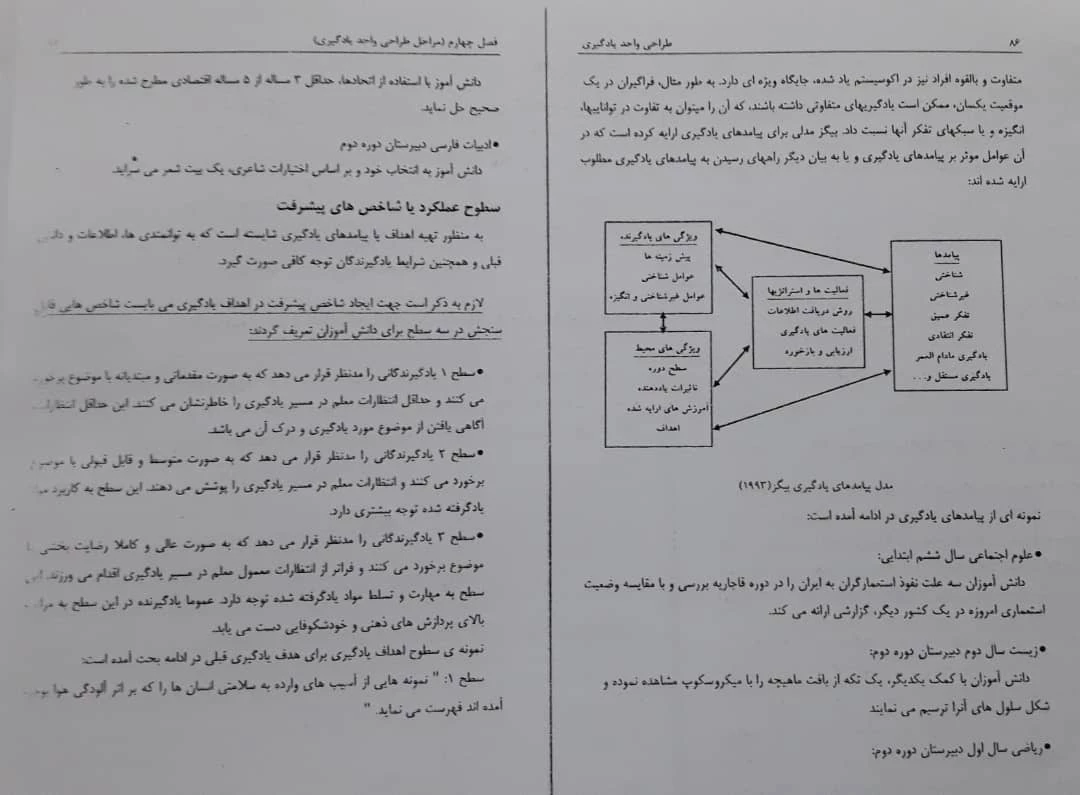 ۸۶
طراحی واحد یادگیری
متفاوت و بالقوه افراد نیز در اکوسیستم یاد شده، جایگاه ویژه ای دارد. به طور مثال، فراگیران در یک
موقعیت یکسان، ممکن است یادگیریهای متفاوتی داشته باشند، که آن را میتوان به تفاوت در تواناییها،
انگیزه و یا سبکهای تفکر آنها نسبت داد. بیگز مدلی برای پیامدهای یادگیری ارایه کرده است که در
آن عوامل موثر بر پیامدهای یادگیری و یا به بیان دیگر راههای رسیدن به پیامدهای یادگیری مطلوب
ارایه شده اند:
ویژگی های یادگیرنده
پیش زمینه ها
عوامل شناختی
عوامل غیرشناختی و انگیزه
ویژگی های محیط
سطح دوره
تاثیرات یاددهنده
آموزش های ارایه شده
اهداف
فعالیت ها و استراتژیها
روش دریافت اطلاعات
فعالیت های یادگیری
ارزیابی و بازخورد
پیامدها
شناختی
غیرشناختی
تفکر عمیق
تفکر انتقادی
یادگیری مادام العمر
یادگیری مستقل و...
مدل پیامدهای یادگیری بیگز(۱۹۹۳)
نمونه ای از پیامدهای یادگیری در ادامه آمده است:
●علوم اجتماعی سال ششم ابتدایی:
دانش آموزان سه علت نفوذ استعمارگران به ایران را در دوره قاجاریه بررسی و با مقایسه وضعیت
استعماری امروزه در یک کشور دیگر، گزارشی ارائه می کند.
●زیست سال دوم دبیرستان دوره دوم:
دانش آموزان با کمک یکدیگر، یک تکه از بافت ماهیچه را با میکروسکوپ مشاهده نموده و
شکل سلول های آنرا ترسیم می نمایند
●ریاضی سال اول دبیرستان دوره دوم:
فصل چهارم (مراحل طراحی واحد یادگیری)
دانش آموز با استفاده از اتحادها، حداقل ۳ مساله از ۵ مساله اقتصادی مطرح شده را به طور
صحیح حل نماید.
●ادبیات فارسی دبیرستان دوره دوم
دانش آموز به انتخاب خود و بر اساس اختیارات شاعری، یک بیت شعر می سراید.
سطوح عملکرد یا شاخص های پیشرفت
به منظور تهیه اهداف یا پیامدهای یادگیری شایسته است که به توانمندی ها، اطلاعات و
قبلی و همچنین شرایط یادگیرندگان توجه کافی صورت گیرد.
لازم به ذکر است جهت ایجاد شاخص پیشرفت در اهداف یادگیری می بایست شاخص هایی قابل
سنجش در سه سطح برای دانش آموزان تعریف گردند:
●سطح ۱ یادگیرندگانی را مدنظر قرار می دهد که به صورت مقدماتی و مبتدیانه با موضوع
می کنند و حداقل انتظارات معلم در مسیر یادگیری را خاطرنشان می کنند. این حداقل انتظارات
آگاهی یافتن از موضوع مورد یادگیری و درک آن می باشد.
●سطح ۲ یادگیرندگانی را مدنظر قرار می دهد که به صورت متوسط و قابل قبولی با موضوع
برخورد می کنند و انتظارات معلم در مسیر یادگیری را پوشش می دهند. این سطح به کاربرد
یادگرفته شده توجه بیشتری دارد.
●سطح ۳ یادگیرندگانی را مدنظر قرار می دهد که به صورت عالی و کاملا رضایت بخشی
موضوع برخورد می کنند و فراتر از انتظارات معمول معلم در مسیر یادگیری اقدام می ورزند. این
سطح به مهارت و تسلط مواد یادگرفته شده توجه دارد. عموما یادگیرنده در این سطح به
بالای پردازش های ذهنی و خودشکوفایی دست می یابد.
نمونه ی سطوح اهداف یادگیری برای هدف یادگیری قبلی در ادامه بحث آمده است:
سطح ۱: " نمونه هایی از آسیب های وارده به سلامتی انسان ها را که بر اثر آلودگی هوا
آمده اند فهرست می نماید. "